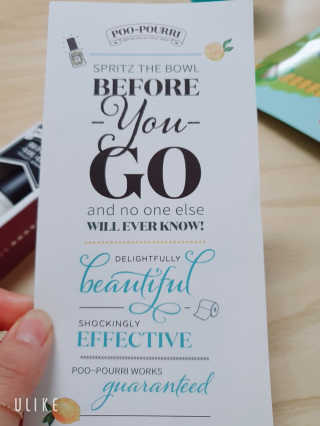 POO~POURRI
SPRITZ THE BOWL
BEFORE
-You-
GO
and no one else
WILL EVER KNOW!
DELIGHTFULLY
beautiful
SHOCKINGLY
EFFECTIVE
POO~POURRI WORKS
guaranteed
ULIKE